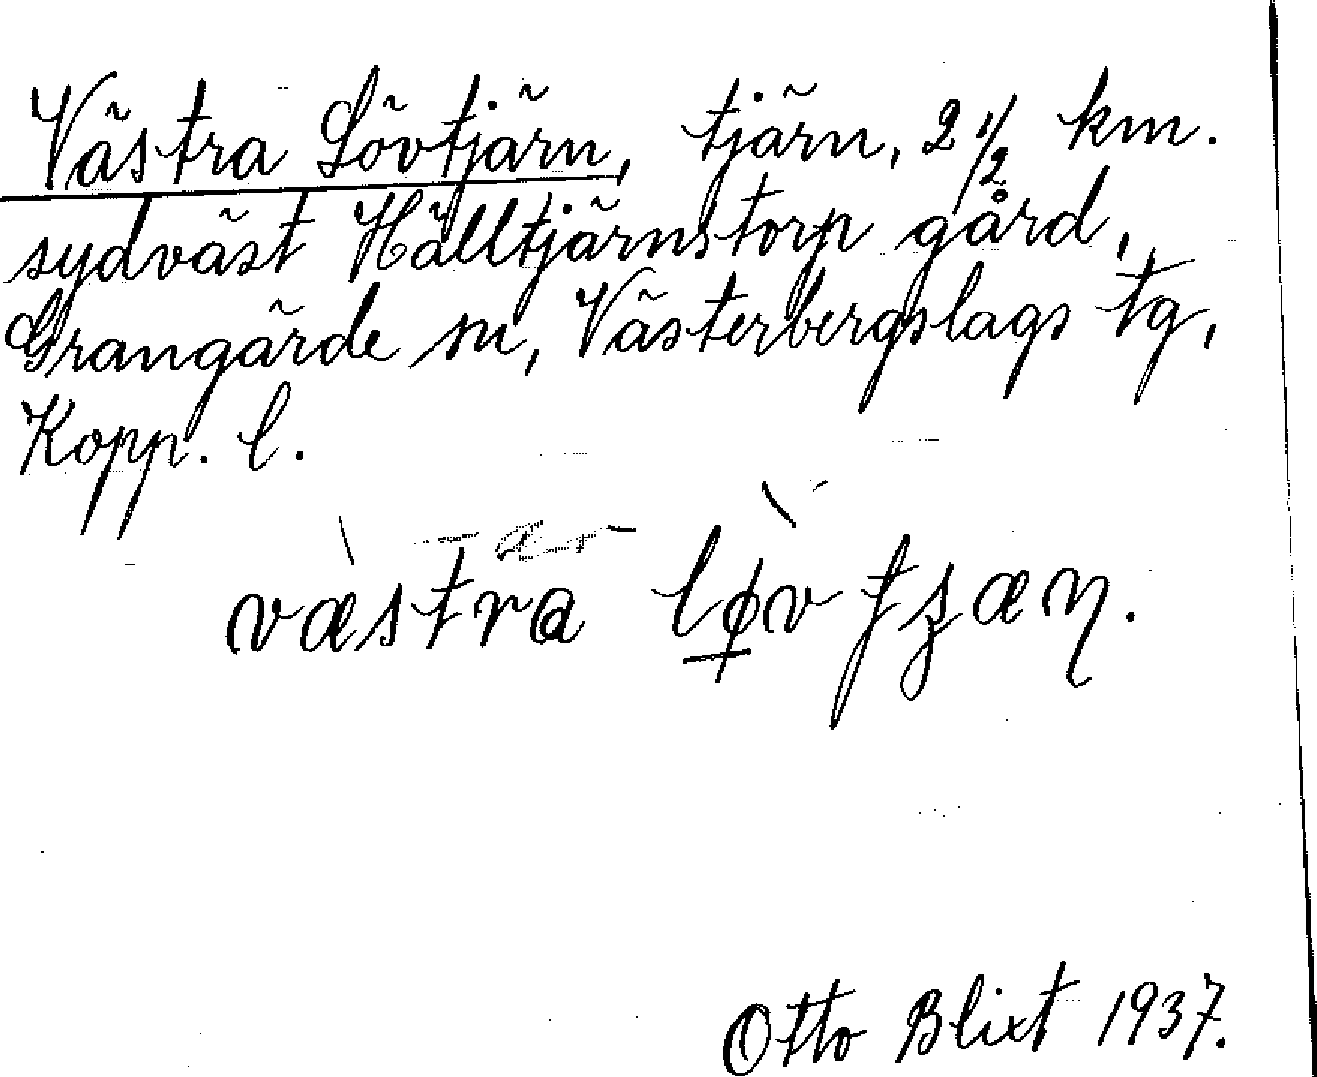 Västra Lövtjärn, tjärn, 2 1/2 km.
sydväst Hälltjärnstorp gård,
Grangärde sn, Västerbergslags tg,
Kopp. l.
væstra løv
Otto Blixt 1937.